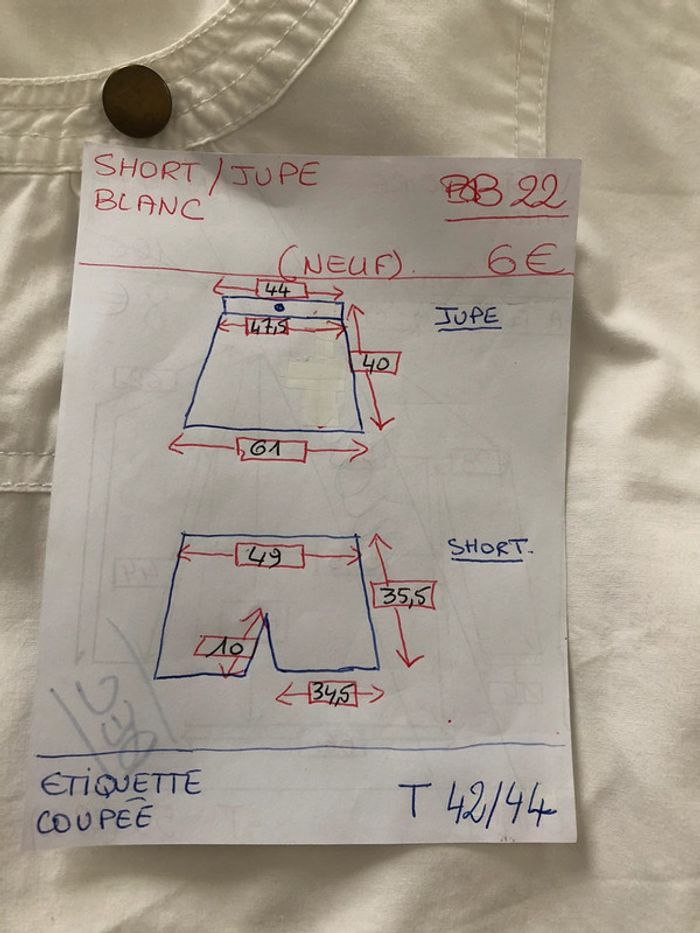 SHORT / JUPE
BLANC
BB 22
(NEUF).
6€
44
JUPE
47,5
40
61
SHORT.
49
35,5
10
34,5
ETIQUETTE
COUPÉE
T 42/44